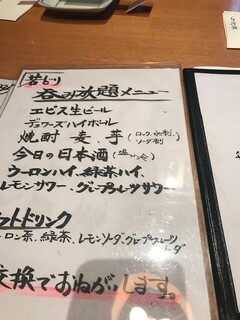 呑み放題メニュー
エビス生ビール
デュワーズハイボール
焼酎 麦、芋(ロック、水割 ソーダ割)
今日の日本酒
ウーロンハイ、緑茶ハイ、
レモンサワー、グレープフルーツサワー
フトドリンク
ーロン茶、緑茶、レモンソーダ、グレープフルーツ
ーダ
交換でおねがいします。